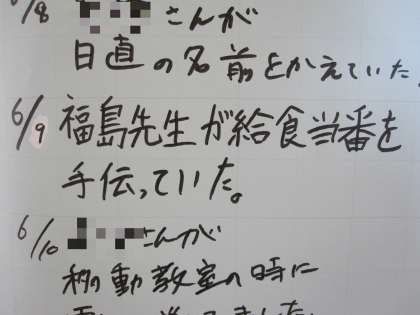 6/8 さんが
日直の名前をかえていた。
6/9 福島先生が給食当番を
手伝っていた。
6/10 さんが
移動教室の時に